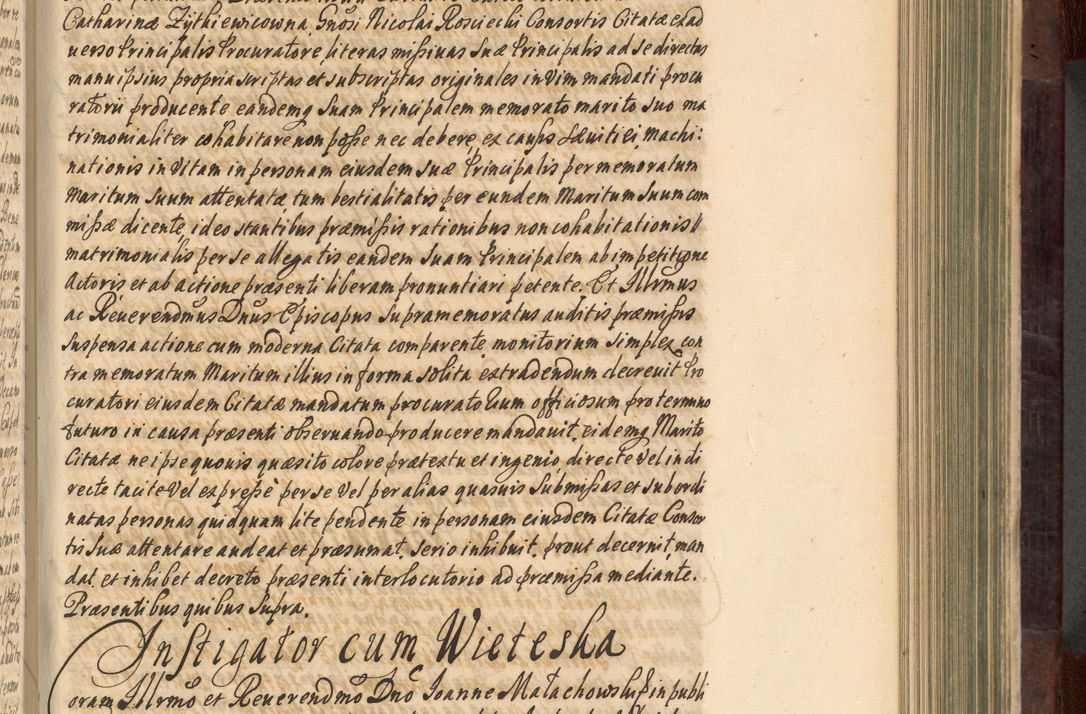 Catharinæ Zythiewicowna, Gnosi Nicolai Kosciechi Consortis Citatæ ex ad
uerso Principalis Procuratore, literas missiuas Suæ Principalis ad se directas
manu ipsius propria scriptas et subscriptas originales in Vim mandati procu
ratorii producente eandemq suam Principalem memorato marito suo ma
trimonialiter cohabitare non posse nec debere, ex causis sævitiei, machi:
nationis in Vitam in personam eiusdem suæ Principalis per memoratum
Maritum Suum attentatæ, tum bestialitatis per eundem Maritum Suum com
missæ dicente, ideo stantibus præmissis rationibus non cohabitationis
matrimonialis per se allegatis eandem suam Principalem ab impetitione
Actoris et ab actione præsenti liberam pronuntiari petente. Et Illrmus
ac Reuerendmus Dnus Episcopus supramemoratus auditis præmissis
suspensa actione cum moderna Citata comparente, monitorium simplex con
tra memoratum Maritum illius in forma solita extradendum decreuit Pro
curatori eiusdem Citatæ mandatum procuratorium officiosum pro termino
futuro in causa præsenti obseruando producere mandauit, eidemq Marito
Citatæ ne ipse quouis quæsito colore prætextu et ingenio, directe Vel indi
recte tacite Vel expresse per se Vel per alias quasuis submissas et subordi
natas personas quidquam lite pendente in personam eiusdem Citatæ Consor
tis suæ attentare audeat et præsumat, serio inhibuit, prout decernit, man
dat et inhibet decreto præsenti interlocutorio ad præmissa mediante.
Præsentibus quibus supra.
Instigator cum Wieteska
Coram Illrmo et Reuerendmo Dno Joanne Małachowski in publi